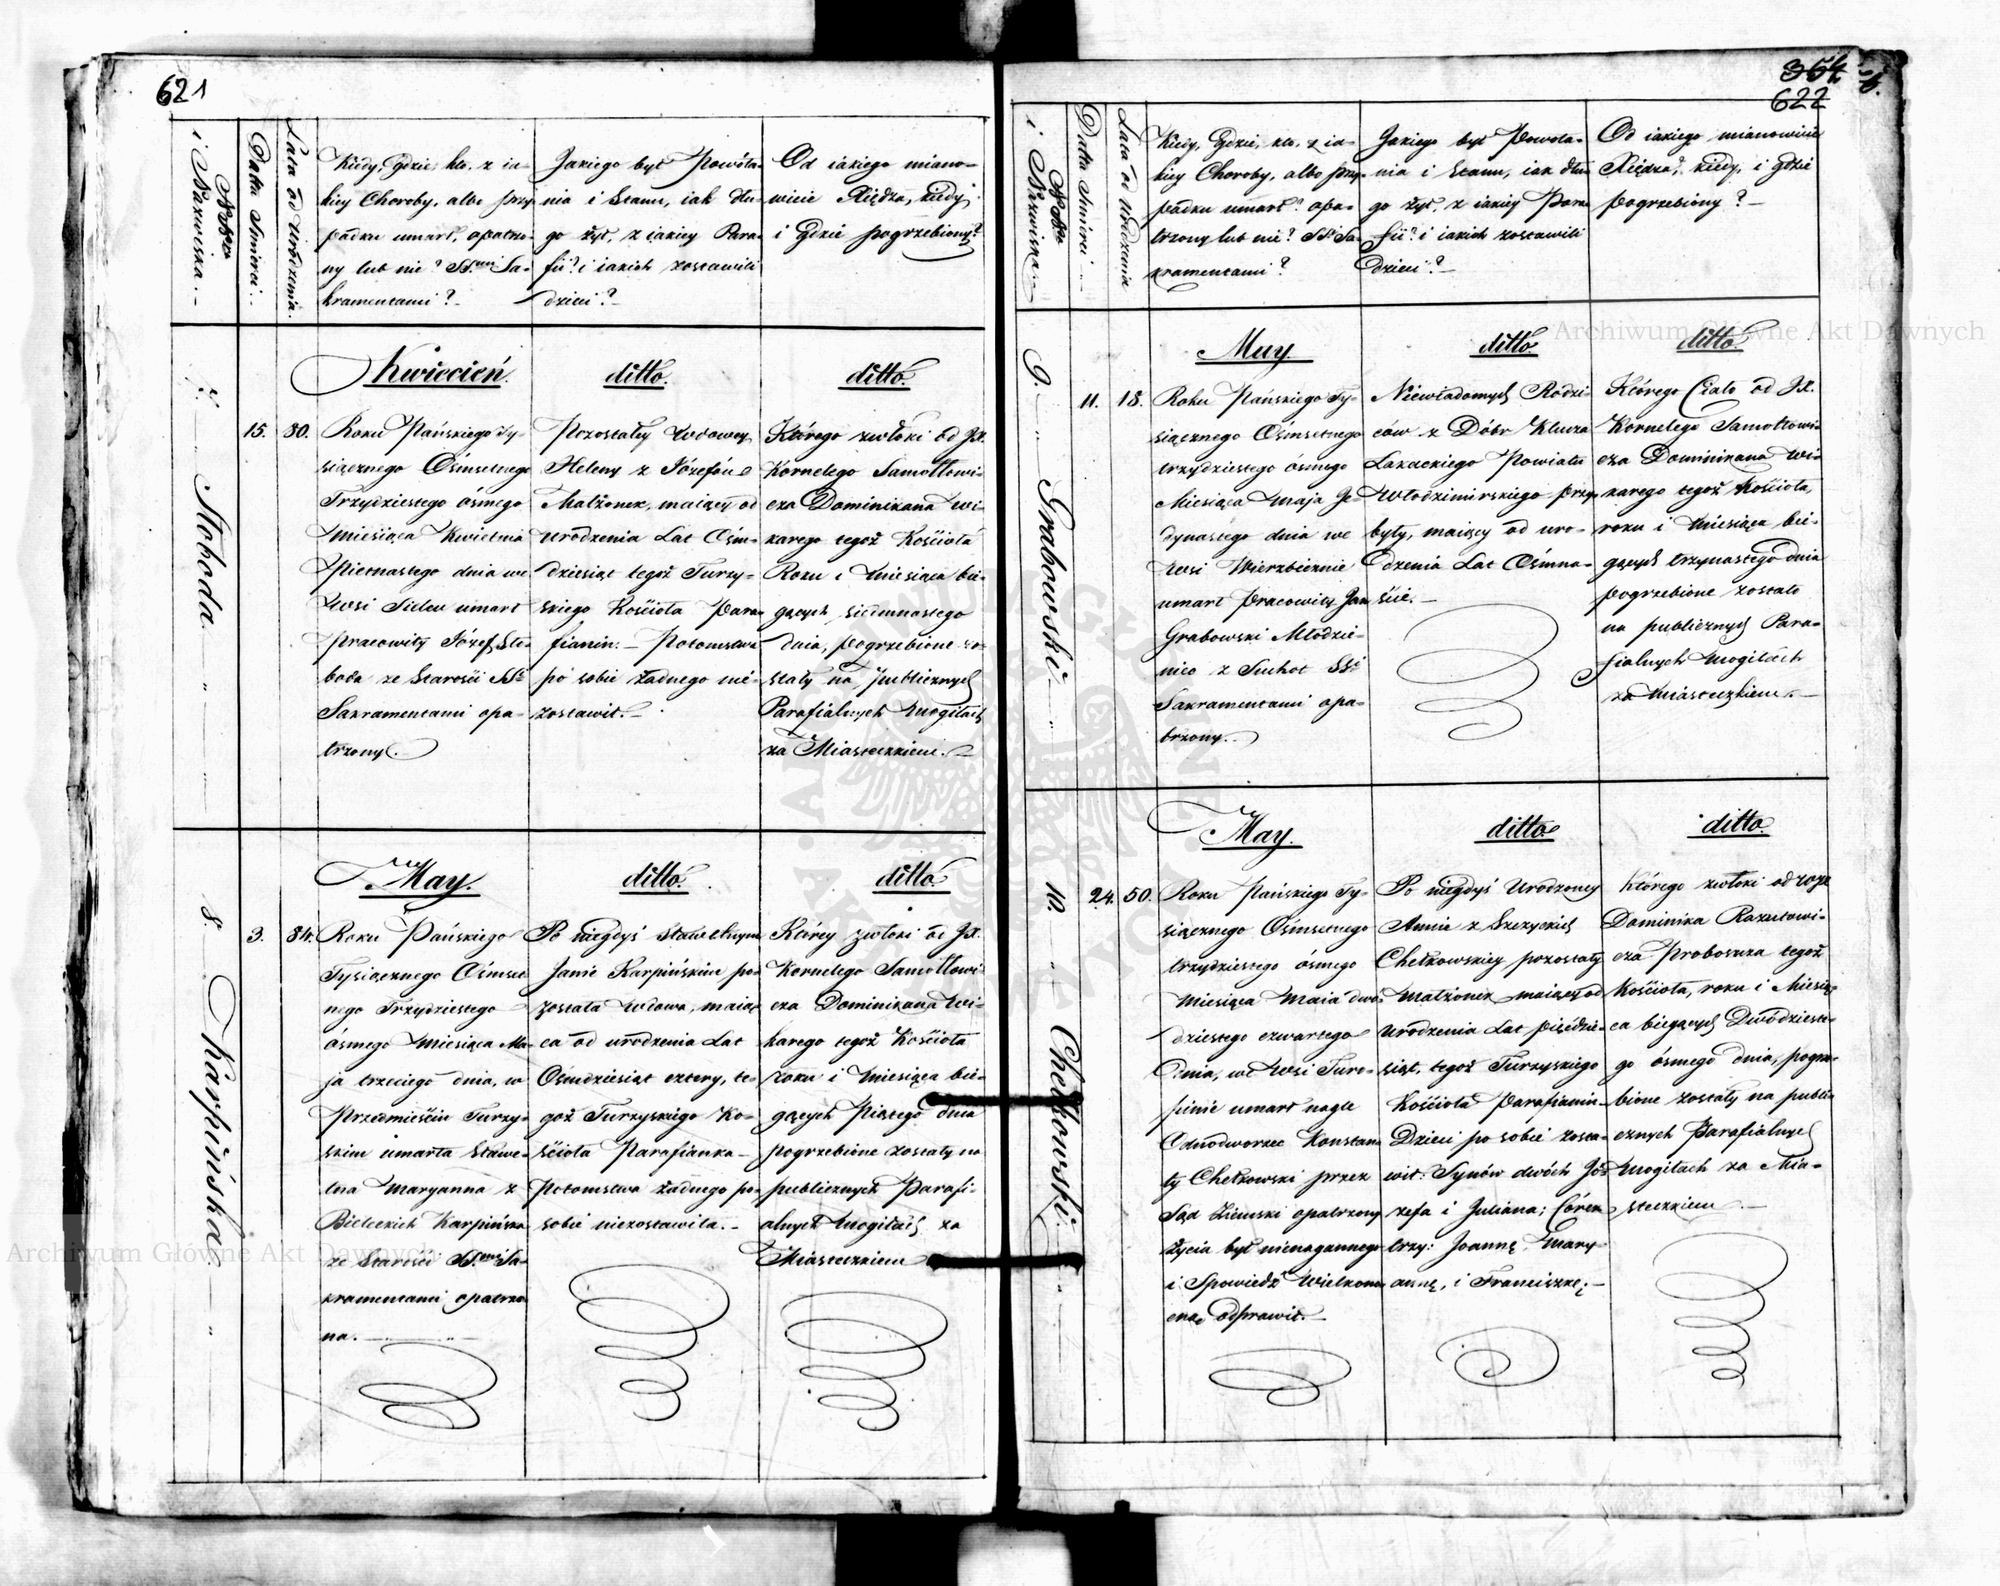 621
No.
i Nazwiska.
Data śmierci.
Lata od Urodzenia.
Kiedy, Gdzie, kto, z ia-
kiey Choroby, albo przy-
padku umarł, opatrzo-
ny lub nie? SS.mi Sa-
kramentami?
Jakiego był Powoła-
nia i Stanu, iak dłu-
go żył, z iakiey Para-
fii? i iakich zostawili
dzieci?
Od iakiego miano-
wicie Xiędza, kiedy
i gdzie pogrzebiony?
7.
Słoboda
15.
80.
Kwiecień
Roku Pańskiego Ty-
siącznego Ośmsetnego
Trzydziestego ósmego
Miesiąca Kwietnia
Piętnastego dnia we
Wsi umarł
Pracowity Józef Sło-
boda ze Starości SS.
Sakramentami opa-
trzony.
ditto.
Pozostałey Wdowey
Heleny z Józefów
Małżonek, maiący od
urodzenia Lat Ośm-
dziesiąt tegoż Turzy-
skiego Kościoła Para-
fianin. Potomstwa
po sobie żadnego nie-
zostawił.
ditto.
Którego zwłoki od JX.
Kornelego Samotłowi-
cza Dominikana Wi-
karego tegoż Kościoła
Roku i Miesiąca bie-
gących siedmnastego
dnia, pogrzebione zo-
stały na publicznych
Parafialnych Mogiłach
za Miasteczkiem.
8.
Karpińska
3.
84.
May.
Roku Pańskiego
Tysiącznego Ośmset-
nego Trzydziestego
ósmego Miesiąca Ma-
ja trzeciego dnia, w
Przedmieściu Turzy-
skim umarła Sławe-
tna Maryanna z
Bieleckich Karpińska
ze Starości SS.mi Sa-
kramentami opatrzo-
na.
ditto.
Po niegdyś Sławetnym
Janie Karpińskim po-
została Wdowa, maią-
ca od urodzenia Lat
Ośmdziesiąt cztery, te-
goż Turzyskiego Ko-
ścioła Parafianka
Potomstwa żadnego po
sobie niezostawiła.
ditto.
Którey zwłoki od JX.
Kornelego Samotłowi-
cza Dominikana Wi-
karego tegoż Kościoła
roku i miesiąca bie-
gących Piątego dnia
pogrzebione zostały na
publicznych Parafi-
alnych Mogiłach za
Miasteczkiem
622
No.
i Nazwiska.
Data śmierci
Lata od Urodzenia
Kiedy, Gdzie, kto, z ia-
kiey Choroby, albo przy-
padku umarł? opa-
trzony lub nie? SS. Sa-
kramentami?
Jakiego był Powoła-
nia i Stanu, iak dłu-
go żył, z iakiey Para-
fii? i iakich zostawili
Dzieci?
Od iakiego mianowicie
Xiędza, kiedy, i gdzie
pogrzebiony?
9.
Grabowski
11.
18.
May.
Roku Pańskiego Ty-
siącznego Ośmsetnego
trzydziestego ósmego
Miesiąca Maja Je-
dynastego dnia we
Wsi Wierzbicznie
umarł Pracowity Jan
Grabowski Młodzie-
niec z Suchot SS.
Sakramentami opa-
trzony.
ditto.
Niewiadomych Rodzi-
ców z Dóbr Klucza
Powiatu
Włodzimirskiego przy-
były, maiący od uro-
dzenia Lat Ośmna-
ście.
ditto.
Którego Ciało od JX.
Kornelego Samotłowi-
cza Dominikana Wi-
karego tegoż Kościoła,
roku i Miesiąca bie-
gących trzynastego dnia
pogrzebione zostało
na publicznych Para-
fialnych Mogiłach
za Miasteczkiem.
10.
Chełkowski
24.
50.
May.
Roku Pańskiego Ty-
siącznego Ośmsetnego
trzydziestego ósmego
Miesiąca Maia dwu-
dziestego czwartego
Dnia, we Wsi Turo-
umarł nagle
Odnodworzec Konstan-
ty Chełkowski przez
Sąd Ziemski opatrzony
życia był nienagannego
i Spowiedź Wielkono-
cną odprawił.
ditto
Po niegdyś Urodzoney
Annie z Szczyckich
Chełkowskiey pozostały
Małżonek maiący od
urodzenia Lat pięćdzie-
siąt, tegoż Turzyskiego
Kościoła Parafianin
Dzieci po sobie zosta-
wił: Synów dwóch Jó-
zefa i Juliana; Córek
trzy: Joannę, Mary-
annę, i Franciszkę;
ditto.
Którego zwłoki od
Dominika Razutowi-
cza Proboszcza tegoż
Kościoła, roku i Miesią-
ca biegących Dwódzieste-
go ósmego dnia, pogrze-
bione zostały na publi-
cznych Parafialnych
Mogiłach za Mia-
steczkiem
Archiwum Główne Akt Dawnych
Archiwum Główne Akt Dawnych